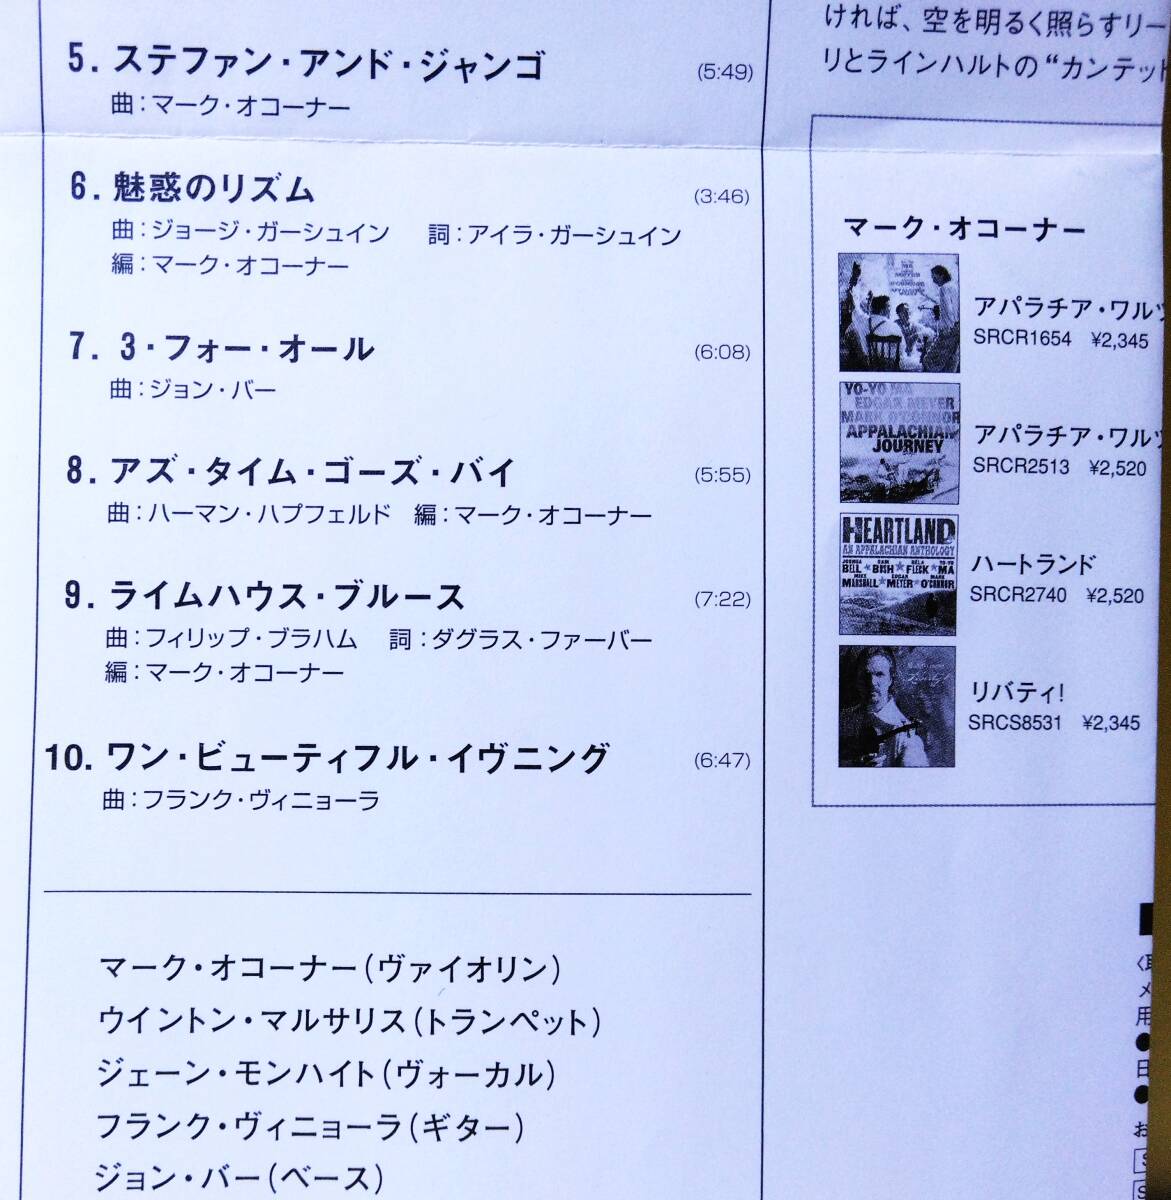 5. ステファン・アンド・ジャンゴ (5:49)
曲：マーク・オコーナー
6. 魅惑のリズム (3:46)
曲：ジョージ・ガーシュイン 詞：アイラ・ガーシュイン
編：マーク・オコーナー
7. 3・フォー・オール (6:08)
曲：ジョン・バー
8. アズ・タイム・ゴーズ・バイ (5:55)
曲：ハーマン・ハプフェルド 編：マーク・オコーナー
9. ライムハウス・ブルース (7:22)
曲：フィリップ・ブラハム 詞：ダグラス・ファーバー
編：マーク・オコーナー
10. ワン・ビューティフル・イヴニング (6:47)
曲：フランク・ヴィニョーラ
マーク・オコーナー(ヴァイオリン)
ウイントン・マルサリス(トランペット)
ジェーン・モンハイト(ヴォーカル)
フランク・ヴィニョーラ(ギター)
ジョン・バー(ベース)
ければ、空を明るく照らすリー
リとラインハルトの“カンテット
マーク・オコーナー
アパラチア・ワルツ
SRCR1654 ¥2,345
YO-YO MA
EDGAR MEYER
MARK O'CONNOR
APPALACHIAN
JOURNEY
アパラチア・ワルツ
SRCR2513 ¥2,520
HEARTLAND
AN APPALACHIAN ANTHOLOGY
JOSHUA BELL ★ SAM BUSH ★ BÉLA FLECK ★ YO-YO MA
MIKE MARSHALL ★ EDGAR MEYER ★ MARK O'CONNOR
ハートランド
SRCR2740 ¥2,520
リバティ!
SRCS8531 ¥2,345
メ
用
日
お